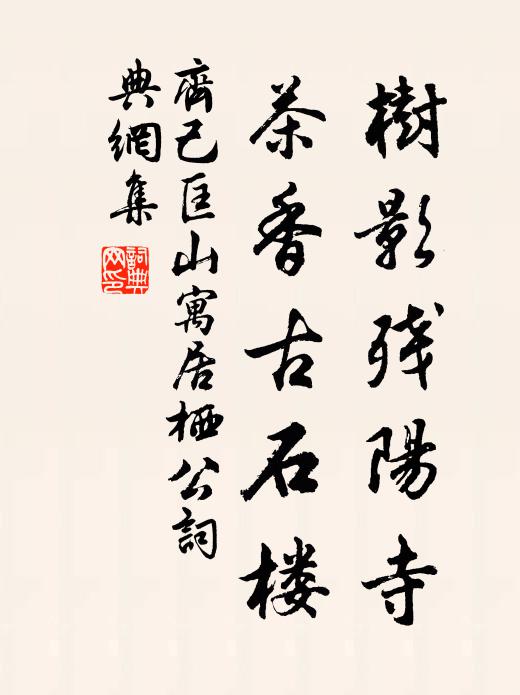 樹影残陽寺
茶香古石楼
齊己匡山寓居栖公詞
典網集
詞典網印